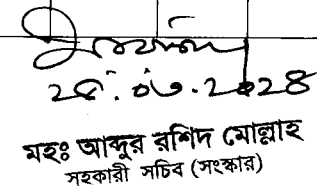 ২৫.০৩.২০২৪
মহঃ আব্দুর রশিদ মোল্লাহ
সহকারী সচিব (সংস্কার)